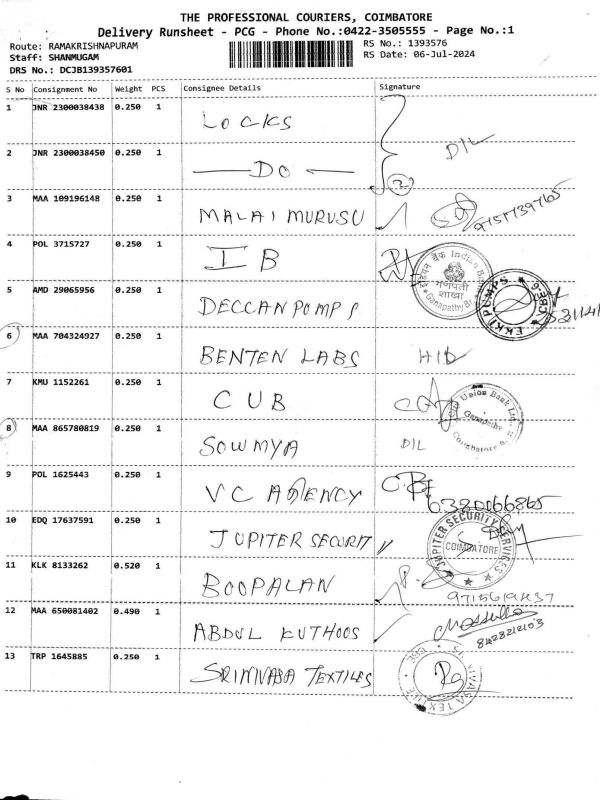 THE PROFESSIONAL COURIERS, COIMBATORE
Delivery Runsheet - PCG - Phone No.:0422-3505555 - Page No.:1
Route: RAMAKRISHNAPURAM
Staff: SHANMUGAM
DRS No.: DCJB139357601
RS No.: 1393576
RS Date: 06-Jul-2024
S No Consignment No Weight PCS Consignee Details Signature
1 JNR 2300038438 0.250 1 LOCKS
2 JNR 2300038450 0.250 1 — DO — D/L
2
3 MAA 109196148 0.250 1 MALAI MURUSU
4 POL 3715727 0.250 1 IB
Indian
गणपती
शाखा
Ganapathy Br.
5 AMD 29065956 0.250 1 DECCAN POMPS
EKKI PUMPS CBE-6
6 MAA 704324927 0.250 1 BENTEN LABS H/D
7 KMU 1152261 0.250 1 CUB
City Union Bank Ltd.
Ganapathy
Coimbatore
8 MAA 865780819 0.250 1 SOWMYA D/L
9 POL 1625443 0.250 1 VC AGENCY
6380066865
10 EDQ 17637591 0.250 1 JUPITER SECURITY
JUPITER SECURITY SERVICES
COIMBATORE
11 KLK 8133262 0.520 1 BOOPALAN
12 MAA 650081402 0.490 1 ABDUL KUTHOOS
13 TRP 1645885 0.250 1 SRINIVASA TEXTILES